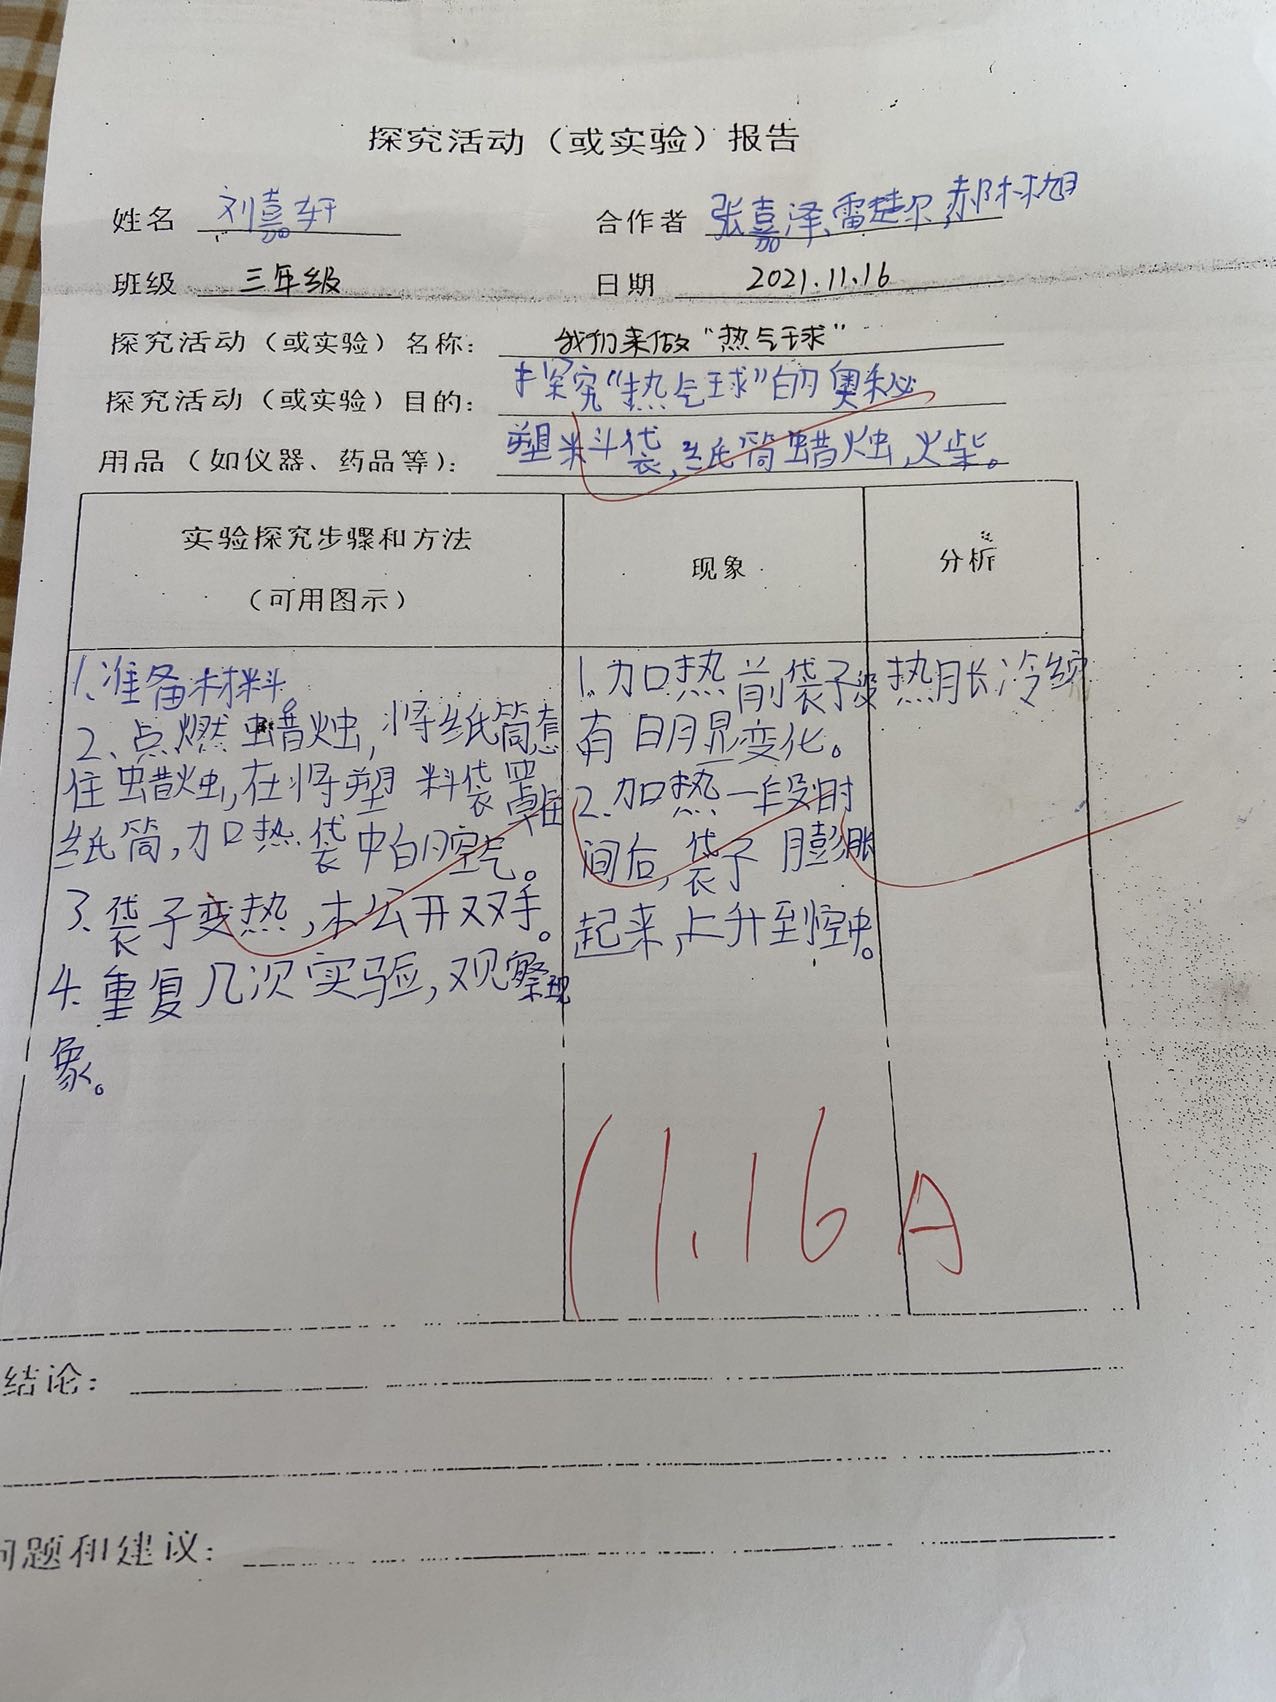 探究活动（或实验）报告
姓名 刘嘉轩 合作者 张嘉泽、雷楚尔,郝林旭
班级 三年级 日期 2021.11.16
探究活动（或实验）名称： 我们来做“热气球”
探究活动（或实验）目的： 探究“热气球”的奥秘
用品（如仪器、药品等）： 塑料袋,纸筒蜡烛,火柴。
实验探究步骤和方法
（可用图示）
现象
分析
1、准备材料。
2、点燃蜡烛,将纸筒套
住蜡烛,在将塑料袋罩住
纸筒,加热袋中的空气。
3、袋子变热,松开双手。
4、重复几次实验,观察现
象。
1、加热前袋子没
有明显变化。
2、加热一段时
间后,袋子膨胀
起来,上升到空中。
热胀冷缩
11.16 A
结论：
问题和建议：